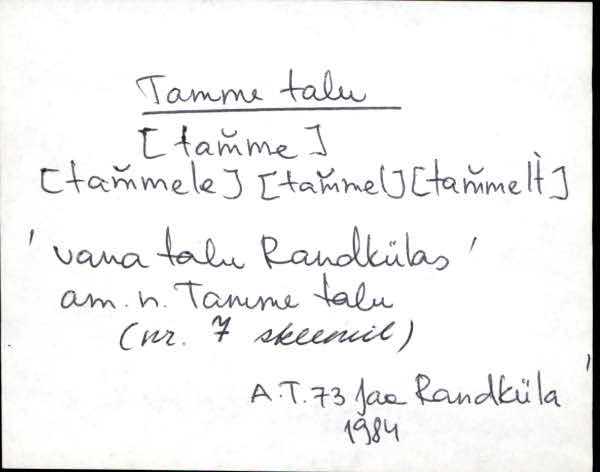 Tamme talu
[tam̆me]
[tam̆mele] [tam̆mel] [tam̆melt̀]
'vana talu Randkülas'
am. n. Tamme talu
(nr. 7 skeemil)
A.T. 73 Jaa Randküla
1984